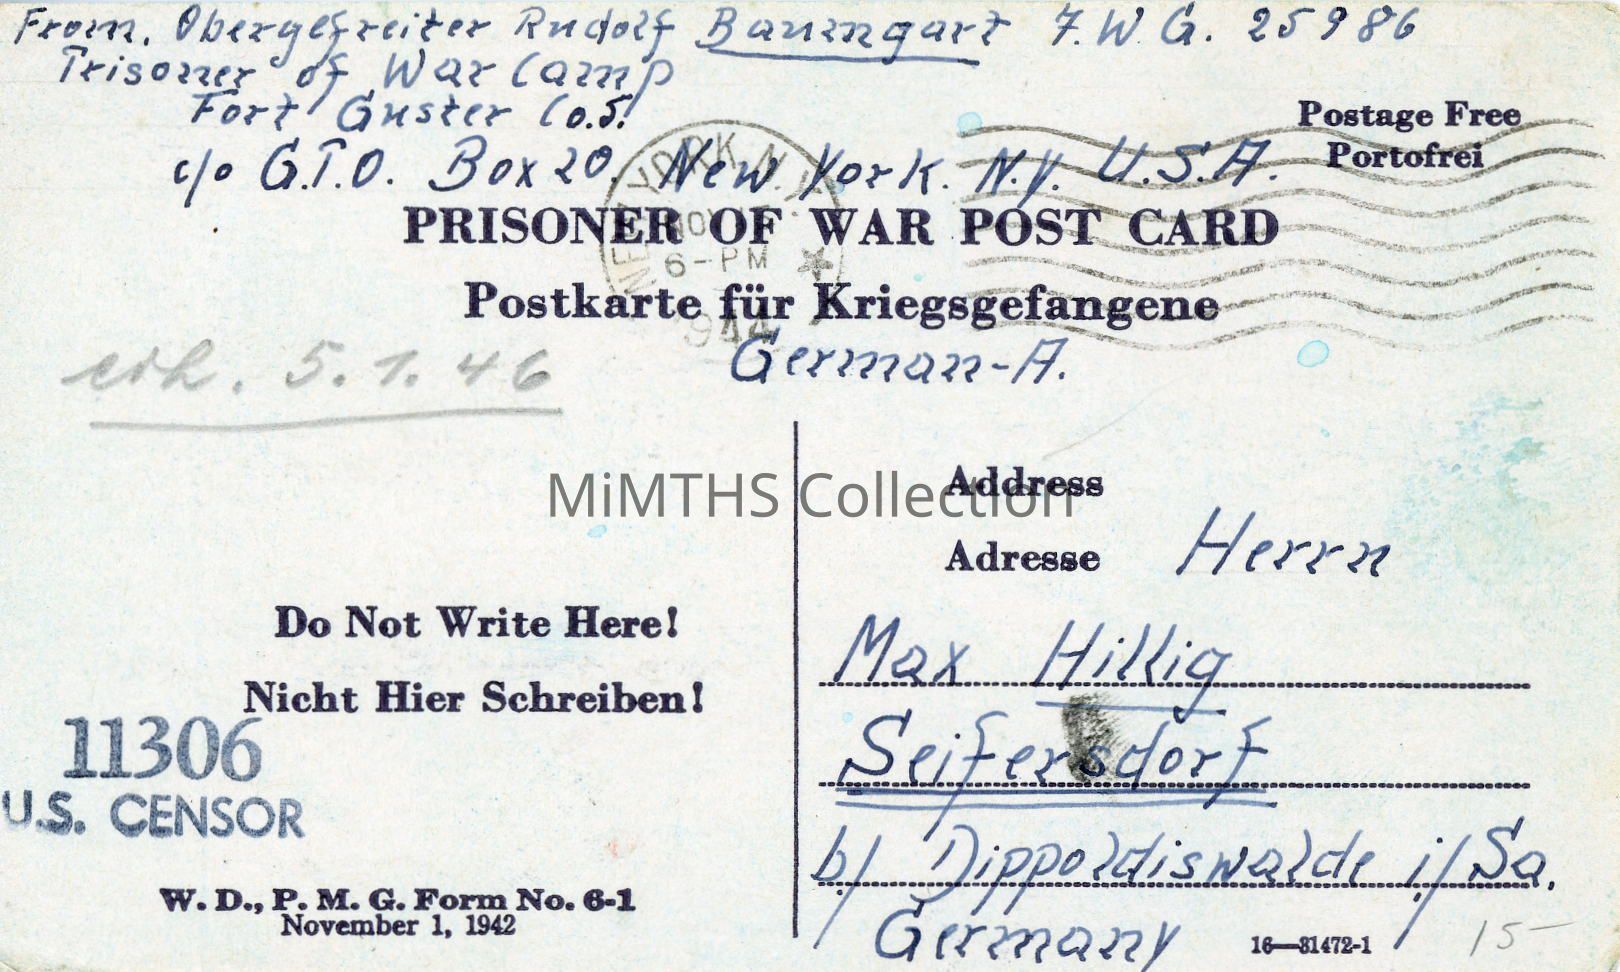 From. Obergefreiter Rudolf Baumgart 7.W.G. 25986
Prisoner of War Camp
Fort Guster Co.5.
c/o G.P.O. Box 20. New York. N.Y. U.S.A.
Postage Free
Portofrei
NEW YORK, N.Y.
NOV
6-PM
1944
PRISONER OF WAR POST CARD
Postkarte für Kriegsgefangene
German-A.
erh. 5.1.46
MiMTHS Collection
Address
Adresse Herrn
Max Hillig
Seifersdorf
b/ Dippoldiswalde i/Sa.
Germany
Do Not Write Here!
Nicht Hier Schreiben!
11306
U.S. CENSOR
W. D., P. M. G. Form No. 6-1
November 1, 1942
16—31472-1
15-